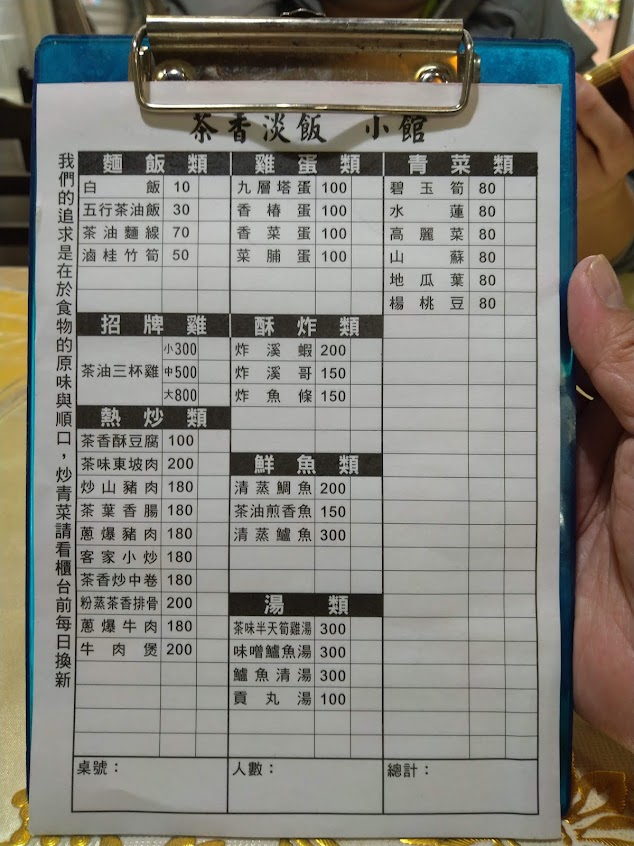 茶香淡飯 小館
我們的追求是在於食物的原味與順口，炒青菜請看櫃台前每日換新
麵飯類
白飯 10
五行茶油飯 30
茶油麵線 70
滷桂竹筍 50
招牌雞
茶油三杯雞
小300
中500
大800
熱炒類
茶香酥豆腐 100
茶味東坡肉 200
炒山豬肉 180
茶葉香腸 180
蔥爆豬肉 180
客家小炒 180
茶香炒中卷 180
粉蒸茶香排骨 200
蔥爆牛肉 180
牛肉煲 200
雞蛋類
九層塔蛋 100
香椿蛋 100
香菜蛋 100
菜脯蛋 100
酥炸類
炸溪蝦 200
炸溪哥 150
炸魚條 150
鮮魚類
清蒸鯛魚 200
茶油煎香魚 150
清蒸鱸魚 300
湯類
茶味半天筍雞湯 300
味噌鱸魚湯 300
鱸魚清湯 300
貢丸湯 100
青菜類
碧玉筍 80
水蓮 80
高麗菜 80
山蘇 80
地瓜葉 80
楊桃豆 80
桌號：
人數：
總計：